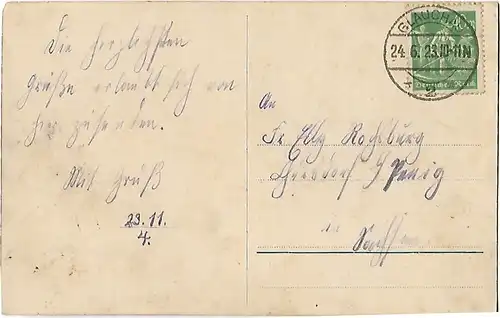 Die herzlichsten
Grüße erlaubt sich von
hier zu senden.
Mit Gruß
23.11.
4.
GLAUCHAU
24. 6. 23. 10-11 N
Deutsches Reich
An
Rochsburg
Penig
in